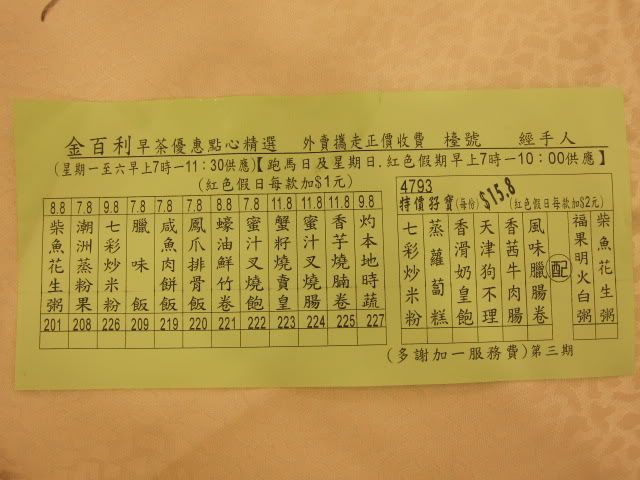 金百利早茶優惠點心精選 外賣攜走正價收費 檯號 經手人
(星期一至六早上7時一11:30供應)【跑馬日及星期日.紅色假期早上7時一10:00供應】
(紅色假日每款加$1元)
8.8 7.8 9.8 7.8 7.8 7.8 8.8 7.8 11.8 11.8 11.8 9.8
柴魚花生粥
潮洲蒸粉果
七彩炒米粉
臘味飯
咸魚肉餅飯
鳳爪排骨飯
蠔油鮮竹卷
蜜汁叉燒飽
蟹籽燒賣皇
蜜汁叉燒腸
香芋燒腩卷
灼本地時蔬
201 208 226 209 219 220 221 222 223 224 225 227
4793
特價孖寶(每份)$15.8(紅色假日每款加$2元)
七彩炒米粉
蒸蘿蔔糕
香滑奶皇飽
天津狗不理
香茜牛肉腸
風味臘腸卷
配
福果明火白粥
柴魚花生粥
(多謝加一服務費)第三期